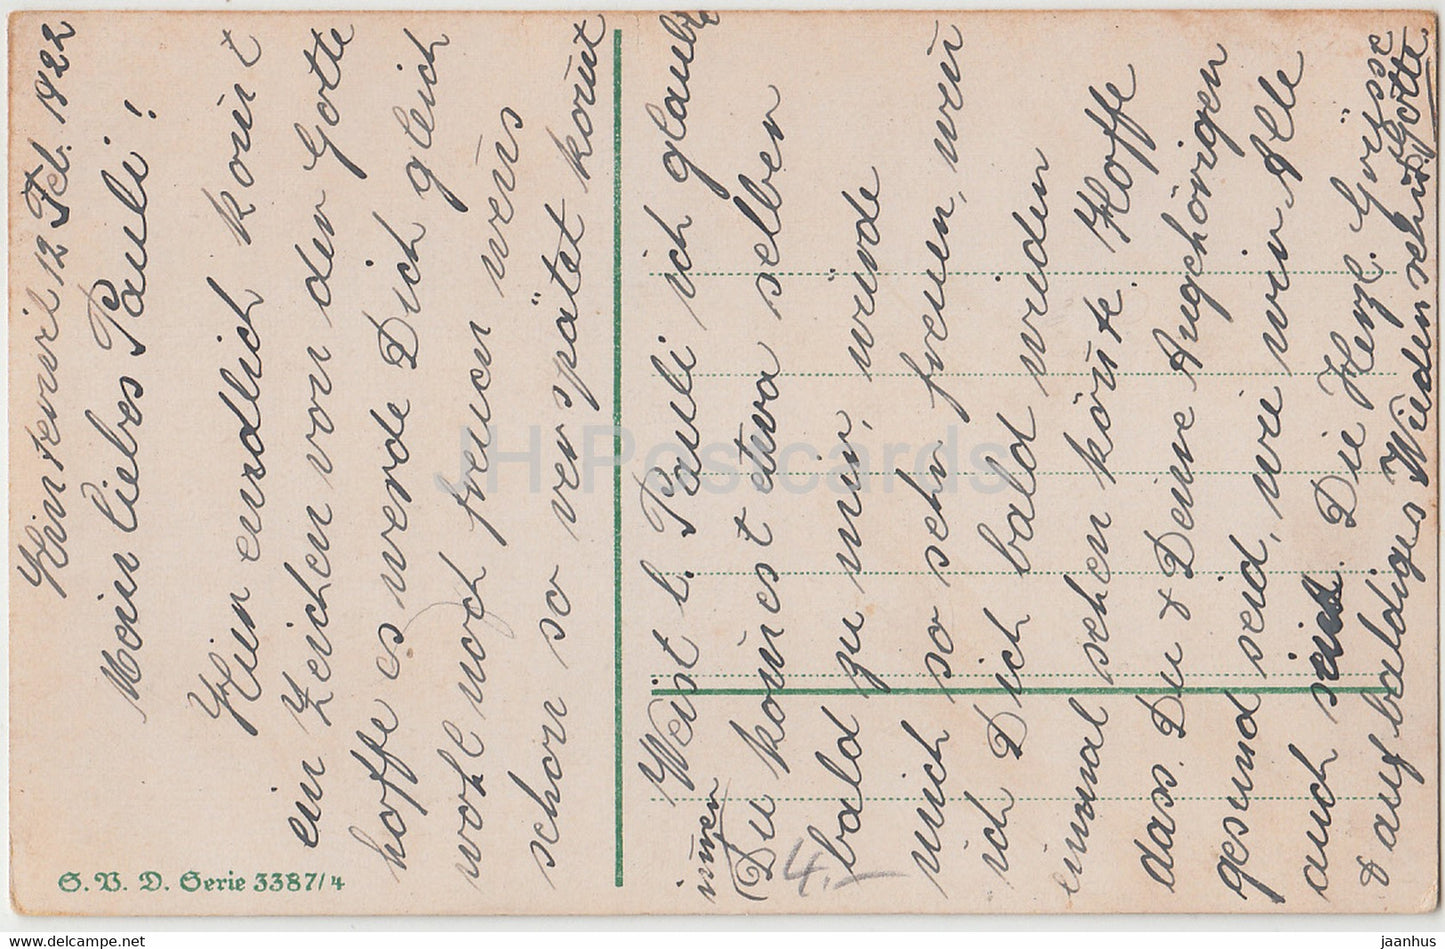 Hinterwil 12 Feb. 1922
Mein liebes Pauli!
Hier endlich komt
ein Zeichen von der Gotte
hoffe es werde Dich gleich
wohl noch freuen wens
schon so verspätet komt
Weist l. Pauli ich glaubte
immer
Du komest etwa selben
bald zu mir, würde
mich so sehr freuen, wen
ich Dich bald wieder
einmal sehen könte. Hoffe
dass Du & Deine Angehörigen
gesund seid, wie wir Alle
auch sind. Die Herzl. Grüsse
& auf baldiges Wiedersehn
Gotte
4.-
S. V. D. Serie 3387/4
JH Postcards
www.delcampe.net
jaanhus